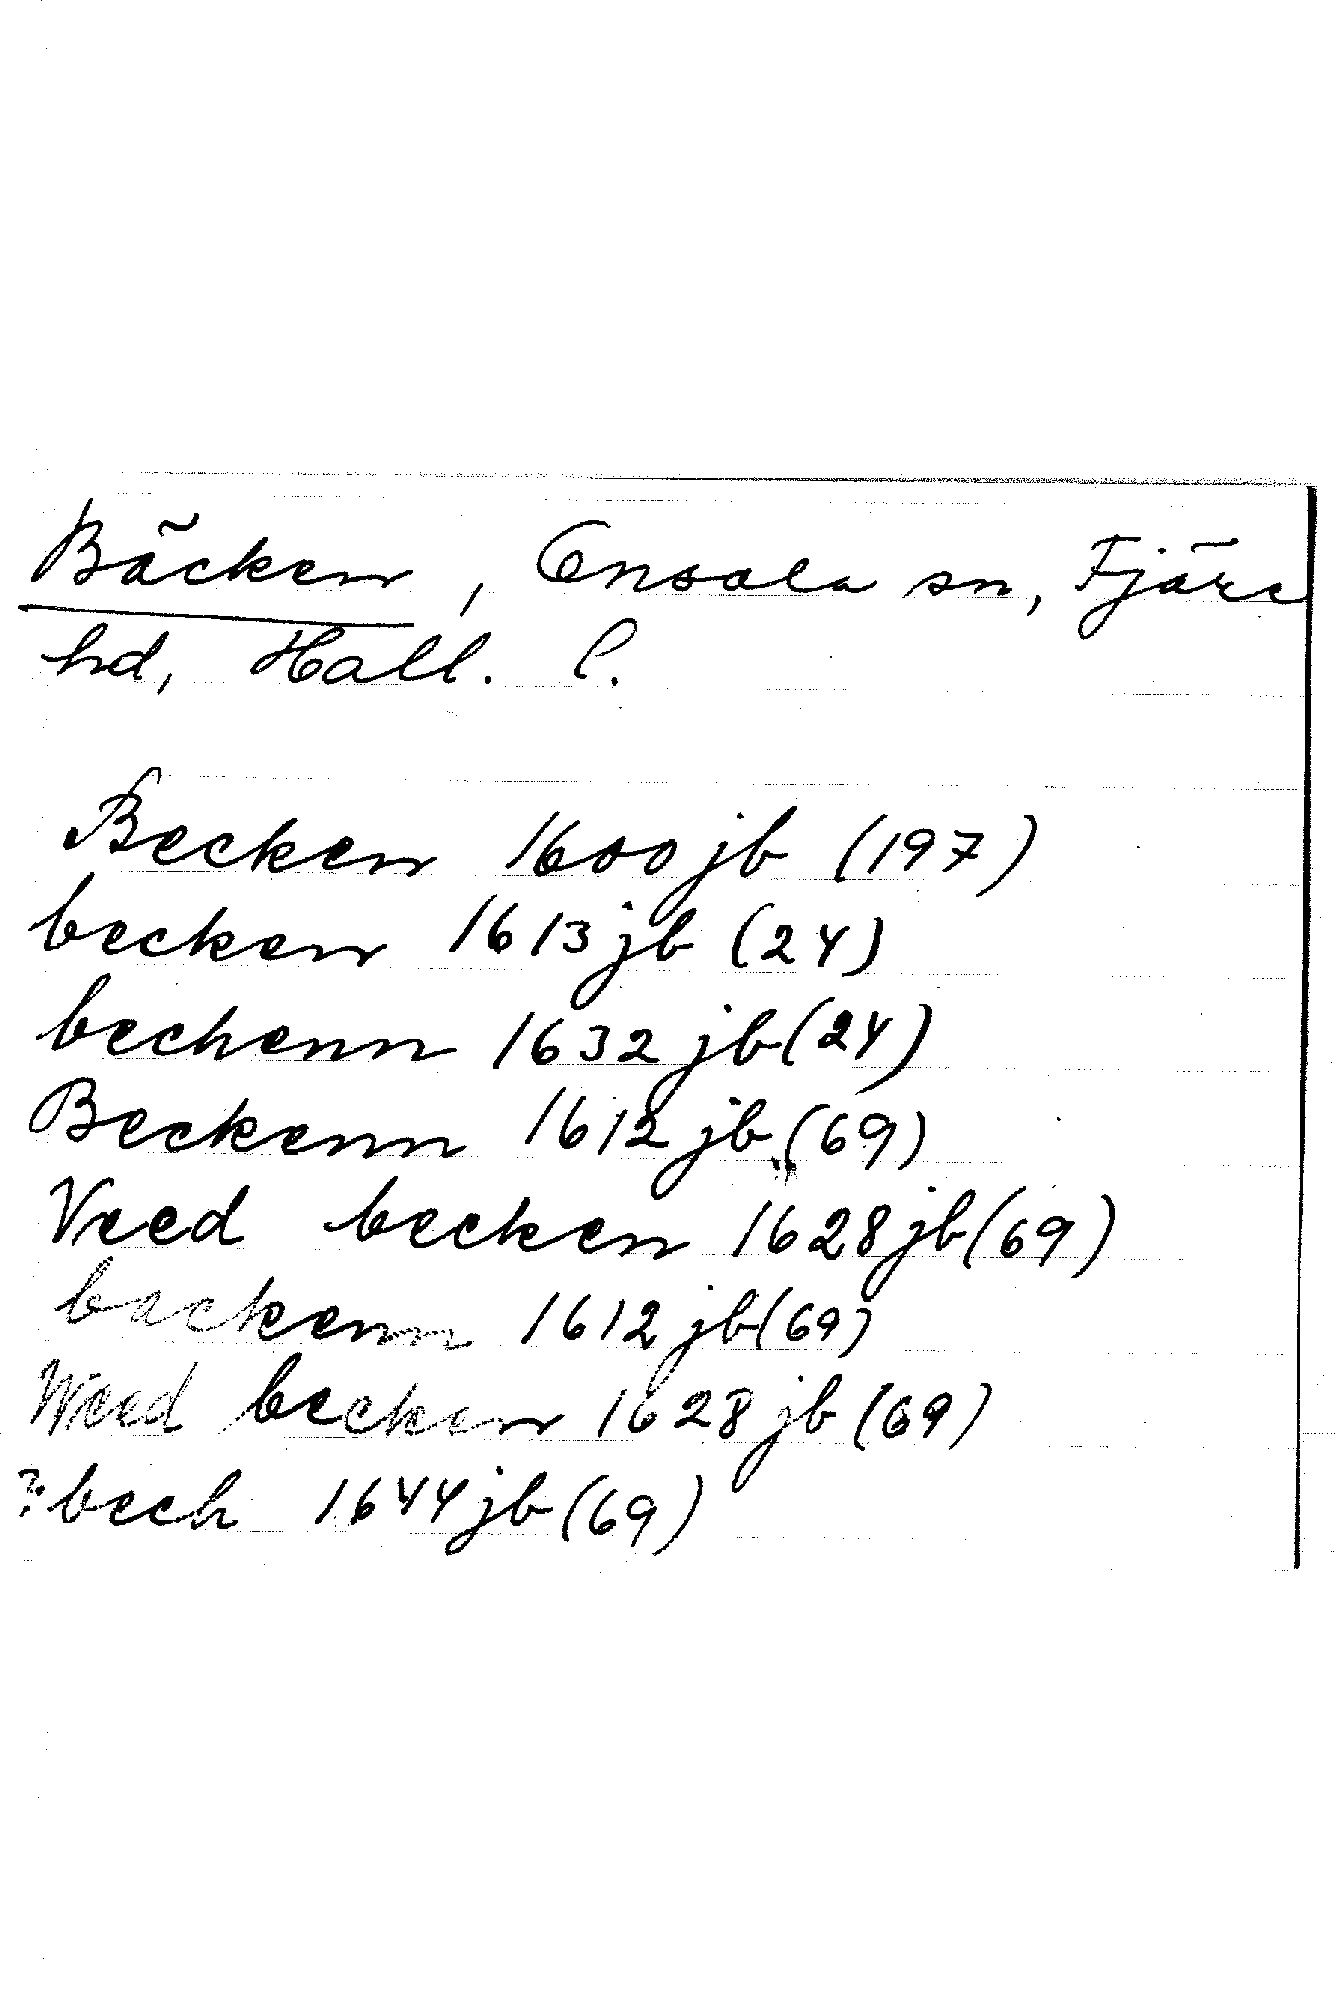 Bäcken, Onsala sn, Fjäre
hd, Hall. l.
Becken 1600 jb (197)
becken 1613 jb (24)
bechenn 1632 jb (24)
Beckenn 1612 jb (69)
Veed becken 1628 jb (69)
backenn 1612 jb (69)
Weed becken 1628 jb (69)
?: bech 1644 jb (69)